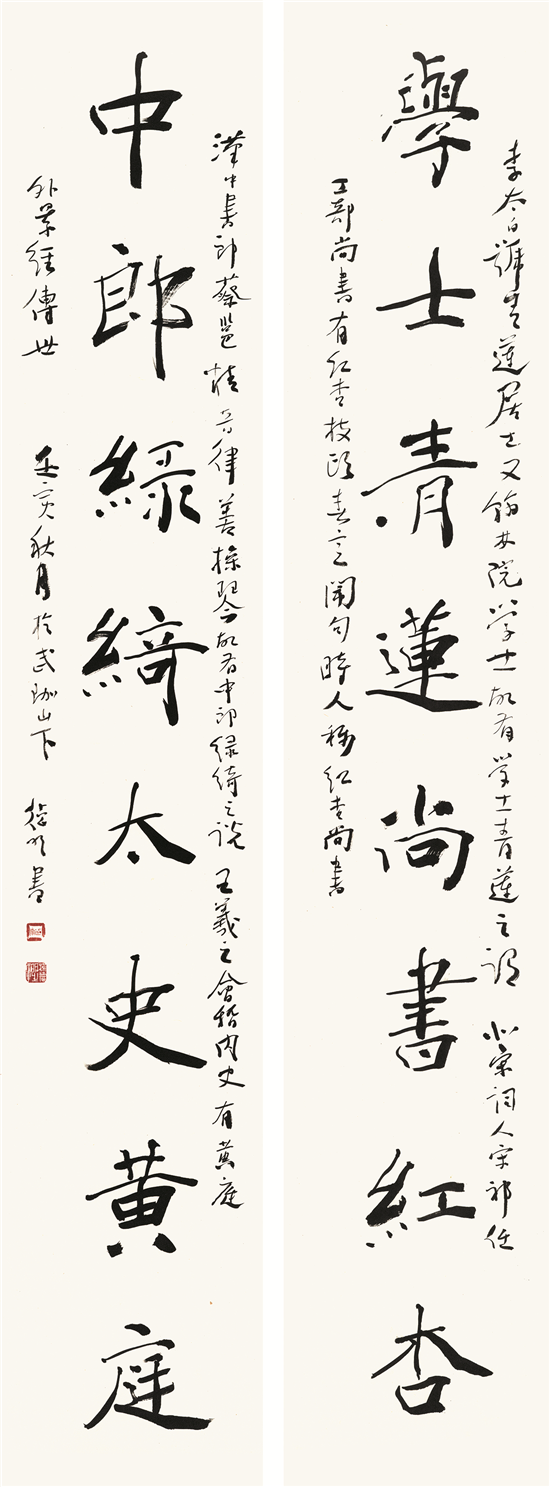 學士青蓮尚書紅杏
李太白號青蓮居士又翰林院学士故有学士青蓮之谓 北宋词人宋祁任
工部尚書有红杏枝頭春意闹句時人称红杏尚書
中郎綠綺太史黃庭
漢中書郎蔡邕精音律善操琴故有中郎绿绮之说 王羲之會稽内史有黄庭
外景经傳世 壬寅秋月於武珈山下 書